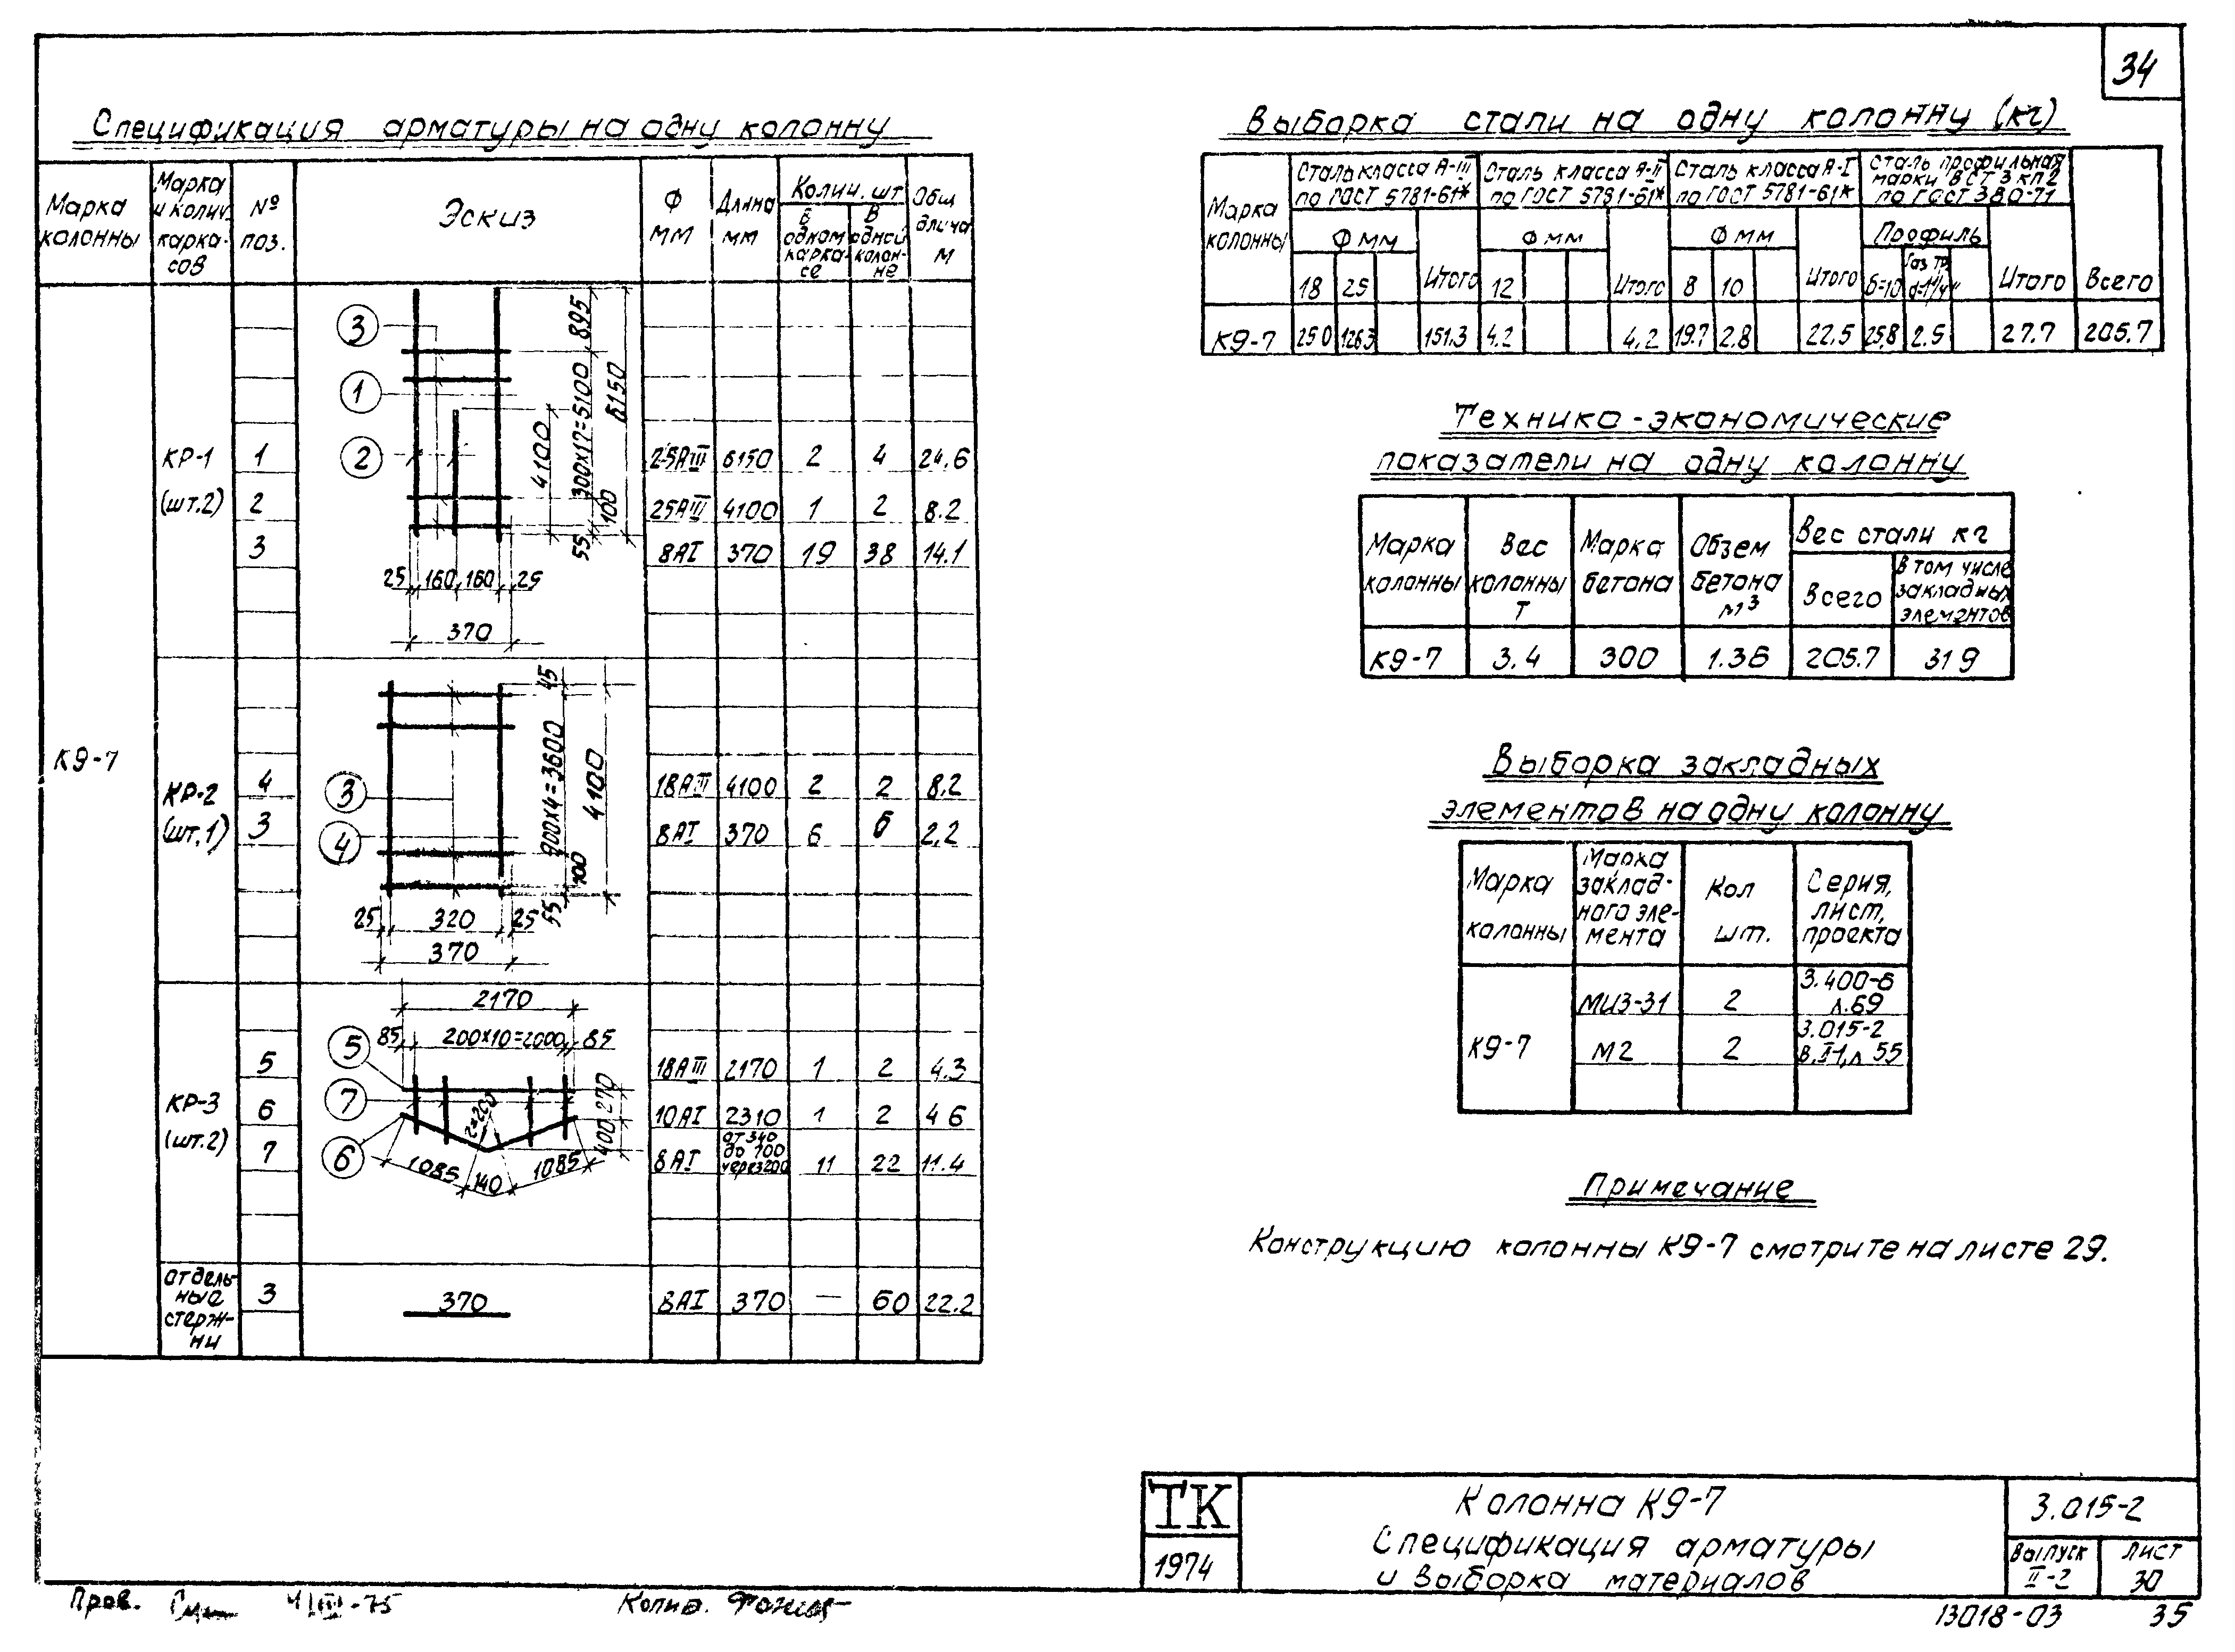 34
Спецификация арматуры на одну колонну
Марка колонны
Марка и колич. карка-сов
№ поз.
Эскиз
Ф мм
Длина мм
Колич. шт
В одном карка-се
В одной колон-не
Общ длина м
К9-7
КР-1 (шт.2)
3
1
2
895
300х17=5100
6150
4100
100
55
25 160 160 25
370
1 25АIII 6150 2 4 24.6
2 25АIII 4100 1 2 8.2
3 8АI 370 19 38 14.1
КР-2 (шт.1)
3
4
45
900х4=3600
4100
100
55
25 320 25
370
4 18АIII 4100 2 2 8.2
3 8АI 370 6 6 2,2
КР-3 (шт.2)
2170
85 200х10=2000 85
5
7
6
270
400
r=200
1085 140 1085
5 18АIII 2170 1 2 4.3
6 10АI 2310 1 2 4 6
7 8АI от 340 до 700 через200 11 22 11.4
отдель-ные стерж-ни
3 370 8АI 370 — 60 22.2
Выборка стали на одну колонну (кг)
Марка колонны
Сталь класса А-III по ГОСТ 5781-61*
Сталь класса А-II по ГОСТ 5781-61*
Сталь класса А-I по ГОСТ 5781-61*
Сталь профильная марки ВСТ 3 кп2 по ГОСТ 380-71
Ф мм
Ф мм
Ф мм
Профиль
18 25 Итого 12 Итого 8 10 Итого δ=10 Газ тр. d=1¼" Итого Всего
К9-7 25 0 126.3 151.3 4.2 4.2 19.7 2.8 22,5 25,8 2.5 27.7 205.7
Технико-экономические
показатели на одну колонну
Марка колонны
Вес колонны Т
Марка бетона
Обзем бетона м³
Вес стали кг
Всего
В том числе закладных элементов
К9-7 3.4 300 1.36 205.7 31 9
Выборка закладных
элементов на одну колонну
Марка колонны
Марка заклад-ного эле-мента
Кол шт.
Серия, лист, проекта
К9-7
МИЗ-31 2 3.400-6 л.69
М2 2 3.015-2 в.II-1, л 55
Примечание
Конструкцию колонны К9-7 смотрите на листе 29.
ТК
1974
Колонна К9-7
Спецификация арматуры
и выборка материалов
3.015-2
Выпуск II-2
Лист 30
Пров.
Копир.
13018-03
35